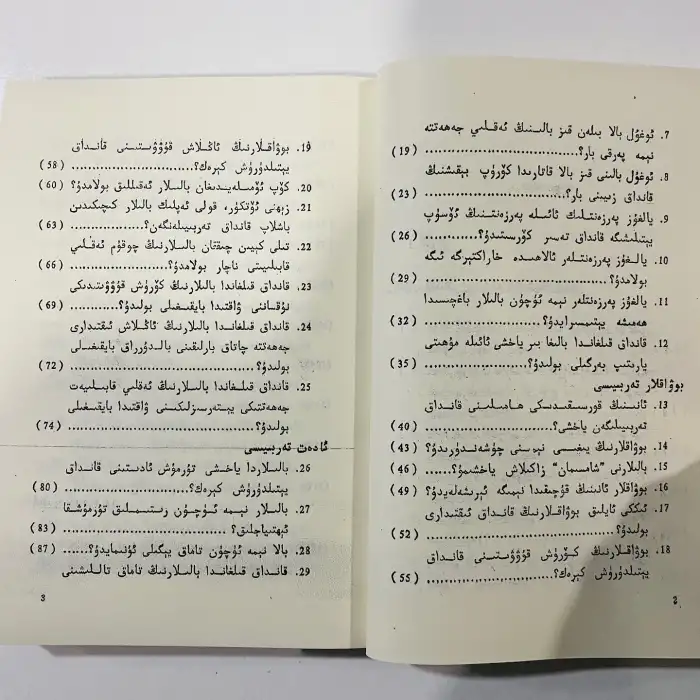 7. ئوغۇل بالا بىلەن قىز بالىنىڭ ئەقلىي جەھەتتە
نېمە پەرقى بار؟ (19)
8. ئوغۇل بالىنى قىز بالا قاتارىدا كۆرۈپ بېقىشنىڭ
قانداق زىيىنى بار؟ (23)
9. يالغۇز پەرزەنتلىك ئائىلە پەرزەنتىنىڭ ئۆسۈپ
يېتىلىشىگە قانداق تەسىر كۆرسىتىدۇ؟ (26)
10. يالغۇز پەرزەنتلەر ئالاھىدە خاراكتېرگە ئىگە
بولامدۇ؟ (29)
11. يالغۇز پەرزەنتلەر نېمە ئۈچۈن باللار باغچىسىدا
ھەمىشە يېتىمسىرايدۇ؟ (32)
12. قانداق قىلغاندا بالىغا بىر ياخشى ئائىلە مۇھىتى
يارىتىپ بەرگىلى بولىدۇ؟ (35)
بوۋاقلار تەربىيىسى
13. ئانىنىڭ قورسىقىدىكى ھامىلىنى قانداق
تەربىيىلىگەن ياخشى؟ (40)
14. بوۋاقلارنىڭ يىغىسى نېمىنى چۈشەندۈرىدۇ؟ (43)
15. بالىلارنى ”شامىمان“ زاكىلاش ياخشىمۇ؟ (46)
16. بوۋاقلار ئانىنىڭ قۇچىقىدا نېمىگە ئېرىشەلەيدۇ؟ (49)
17. ئىككى ئايلىق بوۋاقلارنىڭ قانداق ئىقتىدارى
بولىدۇ؟ (52)
18. بوۋاقلارنىڭ كۆرۈش قۇۋۋىتىنى قانداق
يېتىلدۈرۈش كېرەك؟ (55)
2
19. بوۋاقلارنىڭ ئاڭلاش قۇۋۋىتىنى قانداق
يېتىلدۈرۈش كېرەك؟ (58)
20. كۆپ ئۆمىلەيدىغان بالىلار ئەقىللىق بولامدۇ؟ (60)
21. زېھنى ئۆتكۈر، قولى ئەپلىك بالىلار كىچىكىدىن
باشلاپ قانداق تەربىيىلەنگەن؟ (63)
22. تىلى كېيىن چىققان بالىلارنىڭ چوقۇم ئەقلىي
قابىلىيىتى ناچار بولامدۇ؟ (66)
23. قانداق قىلغاندا بالىلارنىڭ كۆرۈش قۇۋۋىتىدىكى
نۇقساننى ۋاقتىدا بايقىغىلى بولىدۇ؟ (69)
24. قانداق قىلغاندا بالىلارنىڭ ئاڭلاش ئىقتىدارى
جەھەتتە چاتاق بارلىقىنى بالدۇرراق بايقىغىلى
بولىدۇ؟ (72)
25. قانداق قىلغاندا بالىلارنىڭ ئەقلىي قابىلىيەت
جەھەتتىكى يېتەرسىزلىكىنى ۋاقتىدا بايقىغىلى
بولىدۇ؟ (74)
ئادەت تەربىيىسى
26. بالىلاردا ياخشى تۇرمۇش ئادىتىنى قانداق
يېتىلدۈرۈش كېرەك؟ (80)
27. بالىلار نېمە ئۈچۈن رىتىملىق تۇرمۇشقا
ئېھتىياجلىق؟ (83)
28. بالا نېمە ئۈچۈن تاماق يېگىلى ئۇنىمايدۇ؟ (87)
29. قانداق قىلغاندا بالىلارنىڭ تاماق تاللىشىنى
3